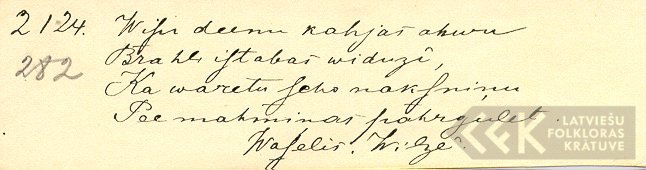 2124. Wisu deenu kahjas ahwu
282 Brahlis istabas widuzî,
Ka waretu scho naksniņu
Pee mahmiņas pahrgulet.
Waselis. Wilzê.
LFK LATVIEŠU
FOLKLORAS
KRĀTUVE